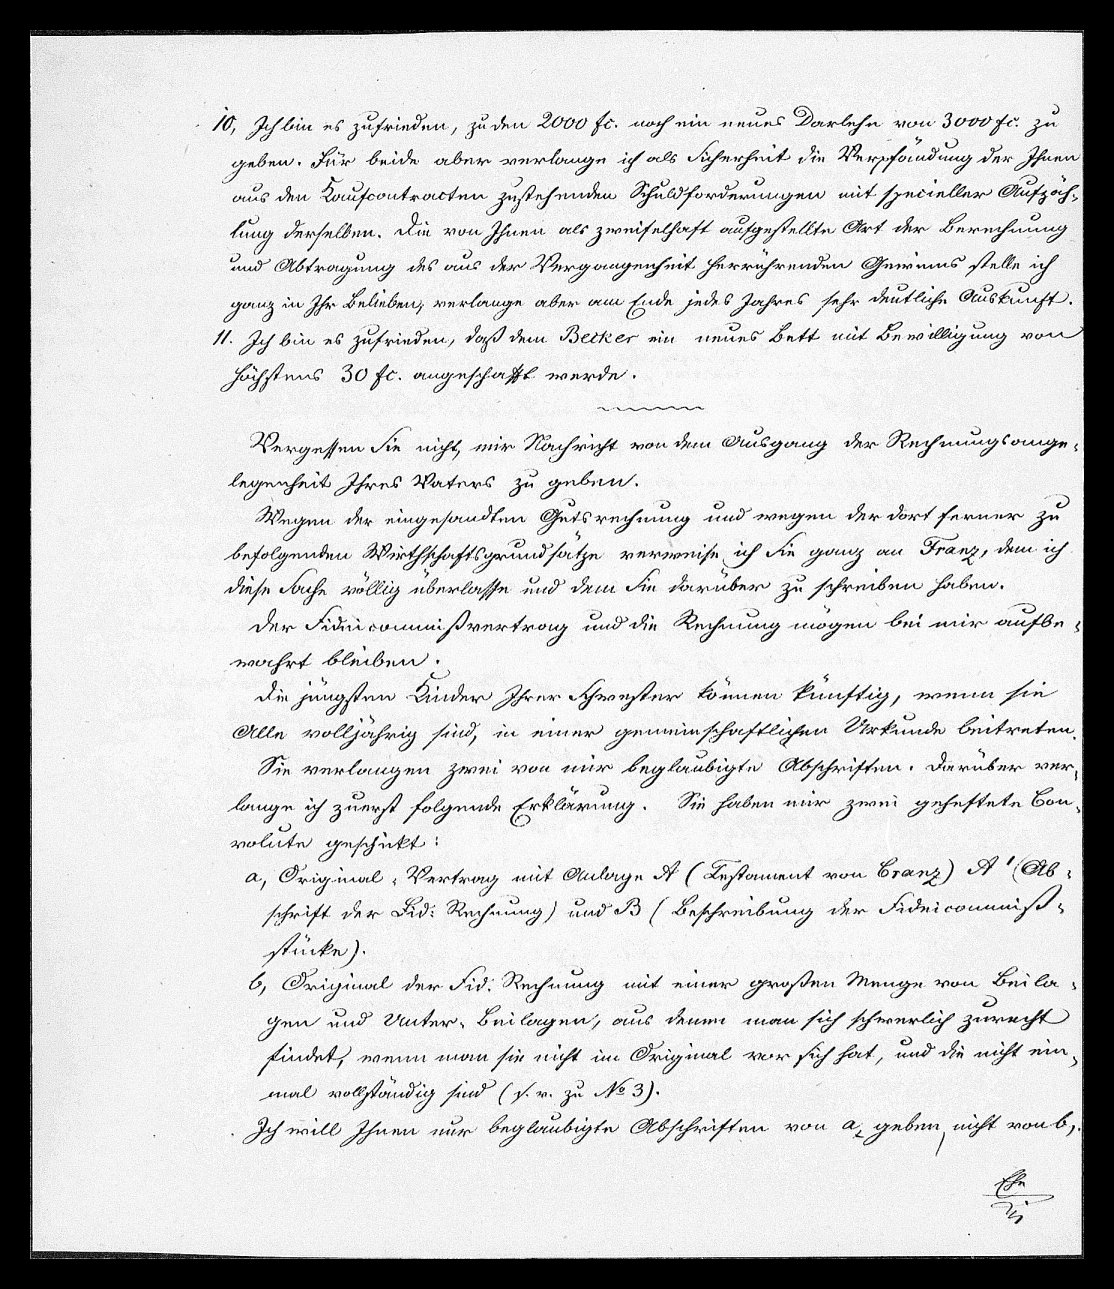 10, Ich bin es zufrieden, zu den 2000 fc. noch ein neues Darlehn von 3000 fc. zu
geben. Für beide aber verlange ich als Sicherheit die Verpfändung der Ihnen
aus den Kaufcontracten zustehenden Schuldforderungen mit specieller Aufzäh-
lung derselben. Die von Ihnen als zweifelhaft aufgestellte Art der Berechnung
und Abtragung des aus der Vergangenheit herrührenden Gewinns stelle ich
ganz in Ihr Belieben, verlange aber am Ende jedes Jahres sehr deutliche Auskunft.
11. Ich bin es zufrieden, daß dem Becker ein neues Bett mit Bewilligung von
höchstens 30 fc. angeschafft werde.
Vergessen Sie nicht, mir Nachricht von dem Ausgang der Rechnungsange-
legenheit Ihres Vaters zu geben.
Wegen der eingesandten Gutsrechnung und wegen der dort ferner zu
befolgenden Wirthschaftsgrundsätze verweise ich Sie ganz an Franz, dem ich
diese Sache völlig überlasse und dem Sie darüber zu schreiben haben.
Der Fideicommißvertrag und die Rechnung mögen bei mir aufbe-
wahrt bleiben.
Die jüngsten Kinder Ihrer Schwester können künftig, wenn sie
Alle volljährig sind, in einer gemeinschaftlichen Urkunde beitreten.
Sie verlangen zwei von mir beglaubigte Abschriften. Darüber ver-
lange ich zuerst folgende Erklärung. Sie haben mir zwei geheftete Con-
volute geschickt:
a, Original-Vertrag mit Anlage A (Testament von Cranz) A' (Ab-
schrift der Fid: Rechnung) und B (Beschreibung der Fideicommiß-
stücke).
b, Original der Fid: Rechnung mit einer großen Menge von Beila-
gen und Unter-Beilagen, aus denen man sich schwerlich zurecht
findet, wenn man sie nicht im Original vor sich hat, und die nicht ein-
mal vollständig sind (s. v. zu No 3).
Ich will Ihnen nur beglaubigte Abschriften von a, geben, nicht von b,.